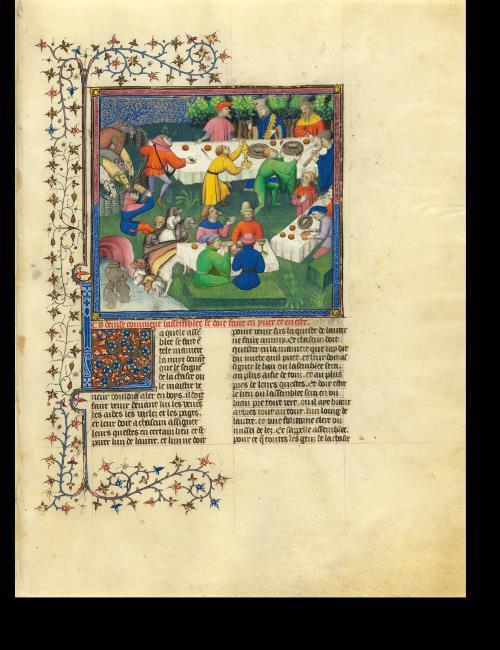 Cy deuise comment lassemblee se doit faire en yuer et en este.
a quele asse
blee se fait e
tele maniere
la nuyt deuant
que le seigne
de la chasse ou
le maistre ve
neur vouldra aler en boys, il doit
faire venir deuant lui les venes
les aides les varlez et les pages,
et leur doit a chascun assigner
leurs questes en certain lieu et se
parer lun de lautre, et lun ne doit
point venir sus la queste de lautre
ne faire ennuy. Et chascun doit
quester en la maniere que iay dit
du mielz quil puet. et leur doit as
signer le lieu ou lassemblee sera
au plus aise de touz, et au plus
pres de leurs questes. Et doit estre
le lieu ou lassemblee sera en un
biau pre tout vert, ou il ayt biaux
arbres tout autour. lun loing de
lautre, et une fontaine clere ou
ruissel de lez. Et sapelle assemblee
pour ce q toutes les genz de la chasse